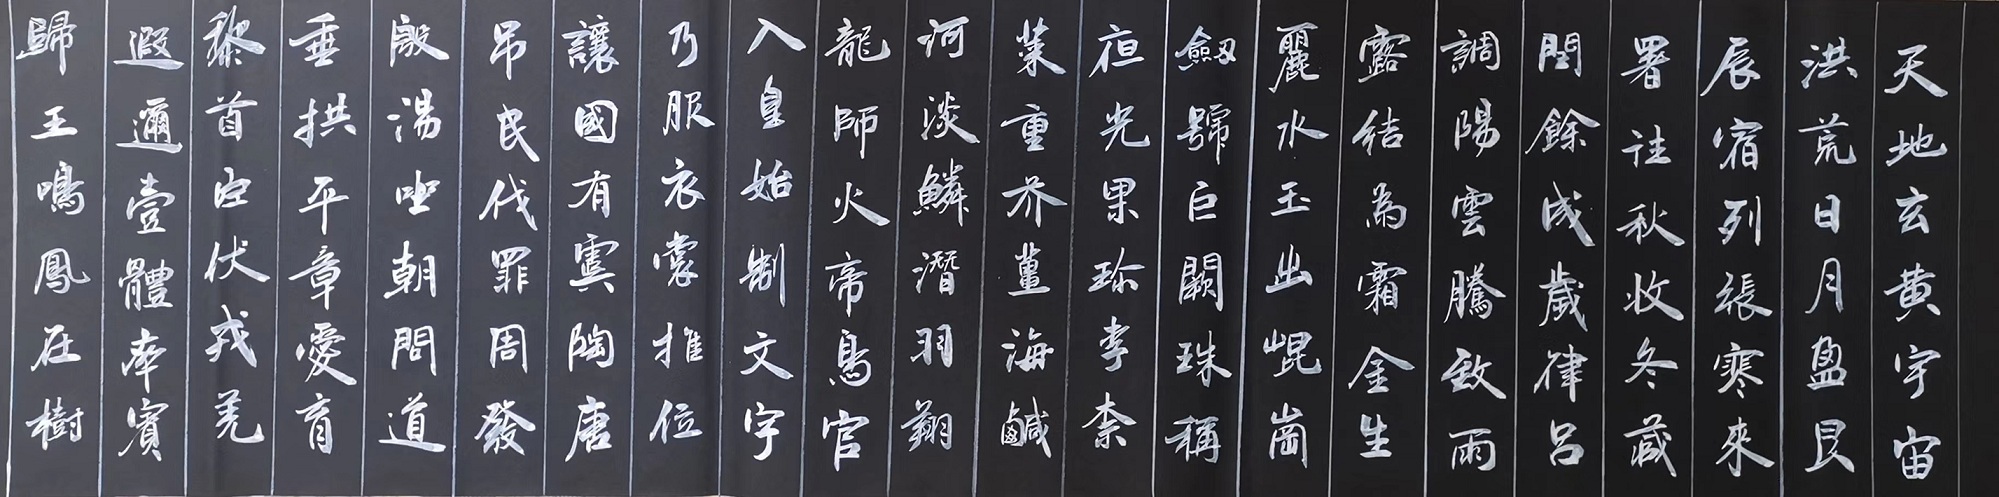 天地玄黄宇宙
洪荒日月盈昃
辰宿列張寒來
署往秋收冬藏
閏餘成歲律呂
調陽雲騰致雨
露結為霜金生
麗水玉出崐崗
劔號巨闕珠稱
夜光果珎李柰
菜重芥薑海鹹
河淡鱗潛羽翔
龍師火帝鳥官
人皇始制文字
乃服衣裳推位
讓國有虞陶唐
吊民伐罪周發
殷湯坐朝問道
垂拱平章愛育
黎首臣伏戎羌
遐邇壹體率賓
歸王鳴鳳在樹